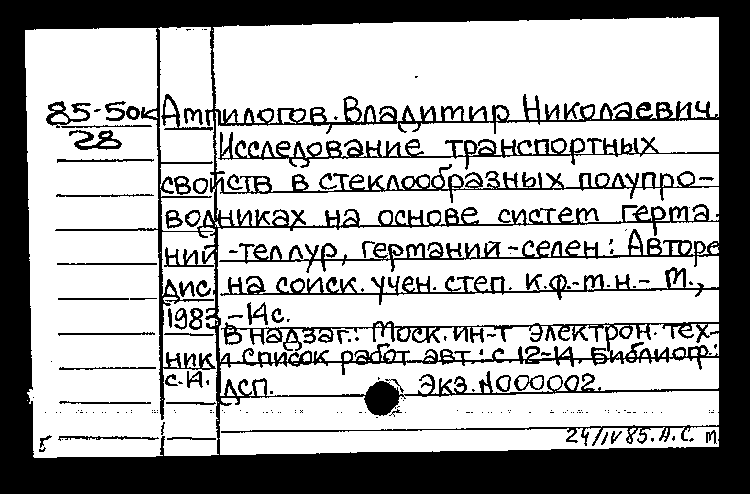 85-5ок Ампилогов, Владимир Николаевич.
28
Исследование транспортных
свойств в стеклообразных полупро-
водниках на основе систем герма-
ний-теллур, германий-селен: Авторе
дис. на соиск. учен. степ. к.ф.-м.н.- М.,
1983.-14с.
В надзаг.: Моск. ин-т электрон. тех-
ники Список работ авт.: с 12-14. Библиогр.:
с.14.
ДСП. Экз. №000002.
Б 24/IV 85. А.С. т.